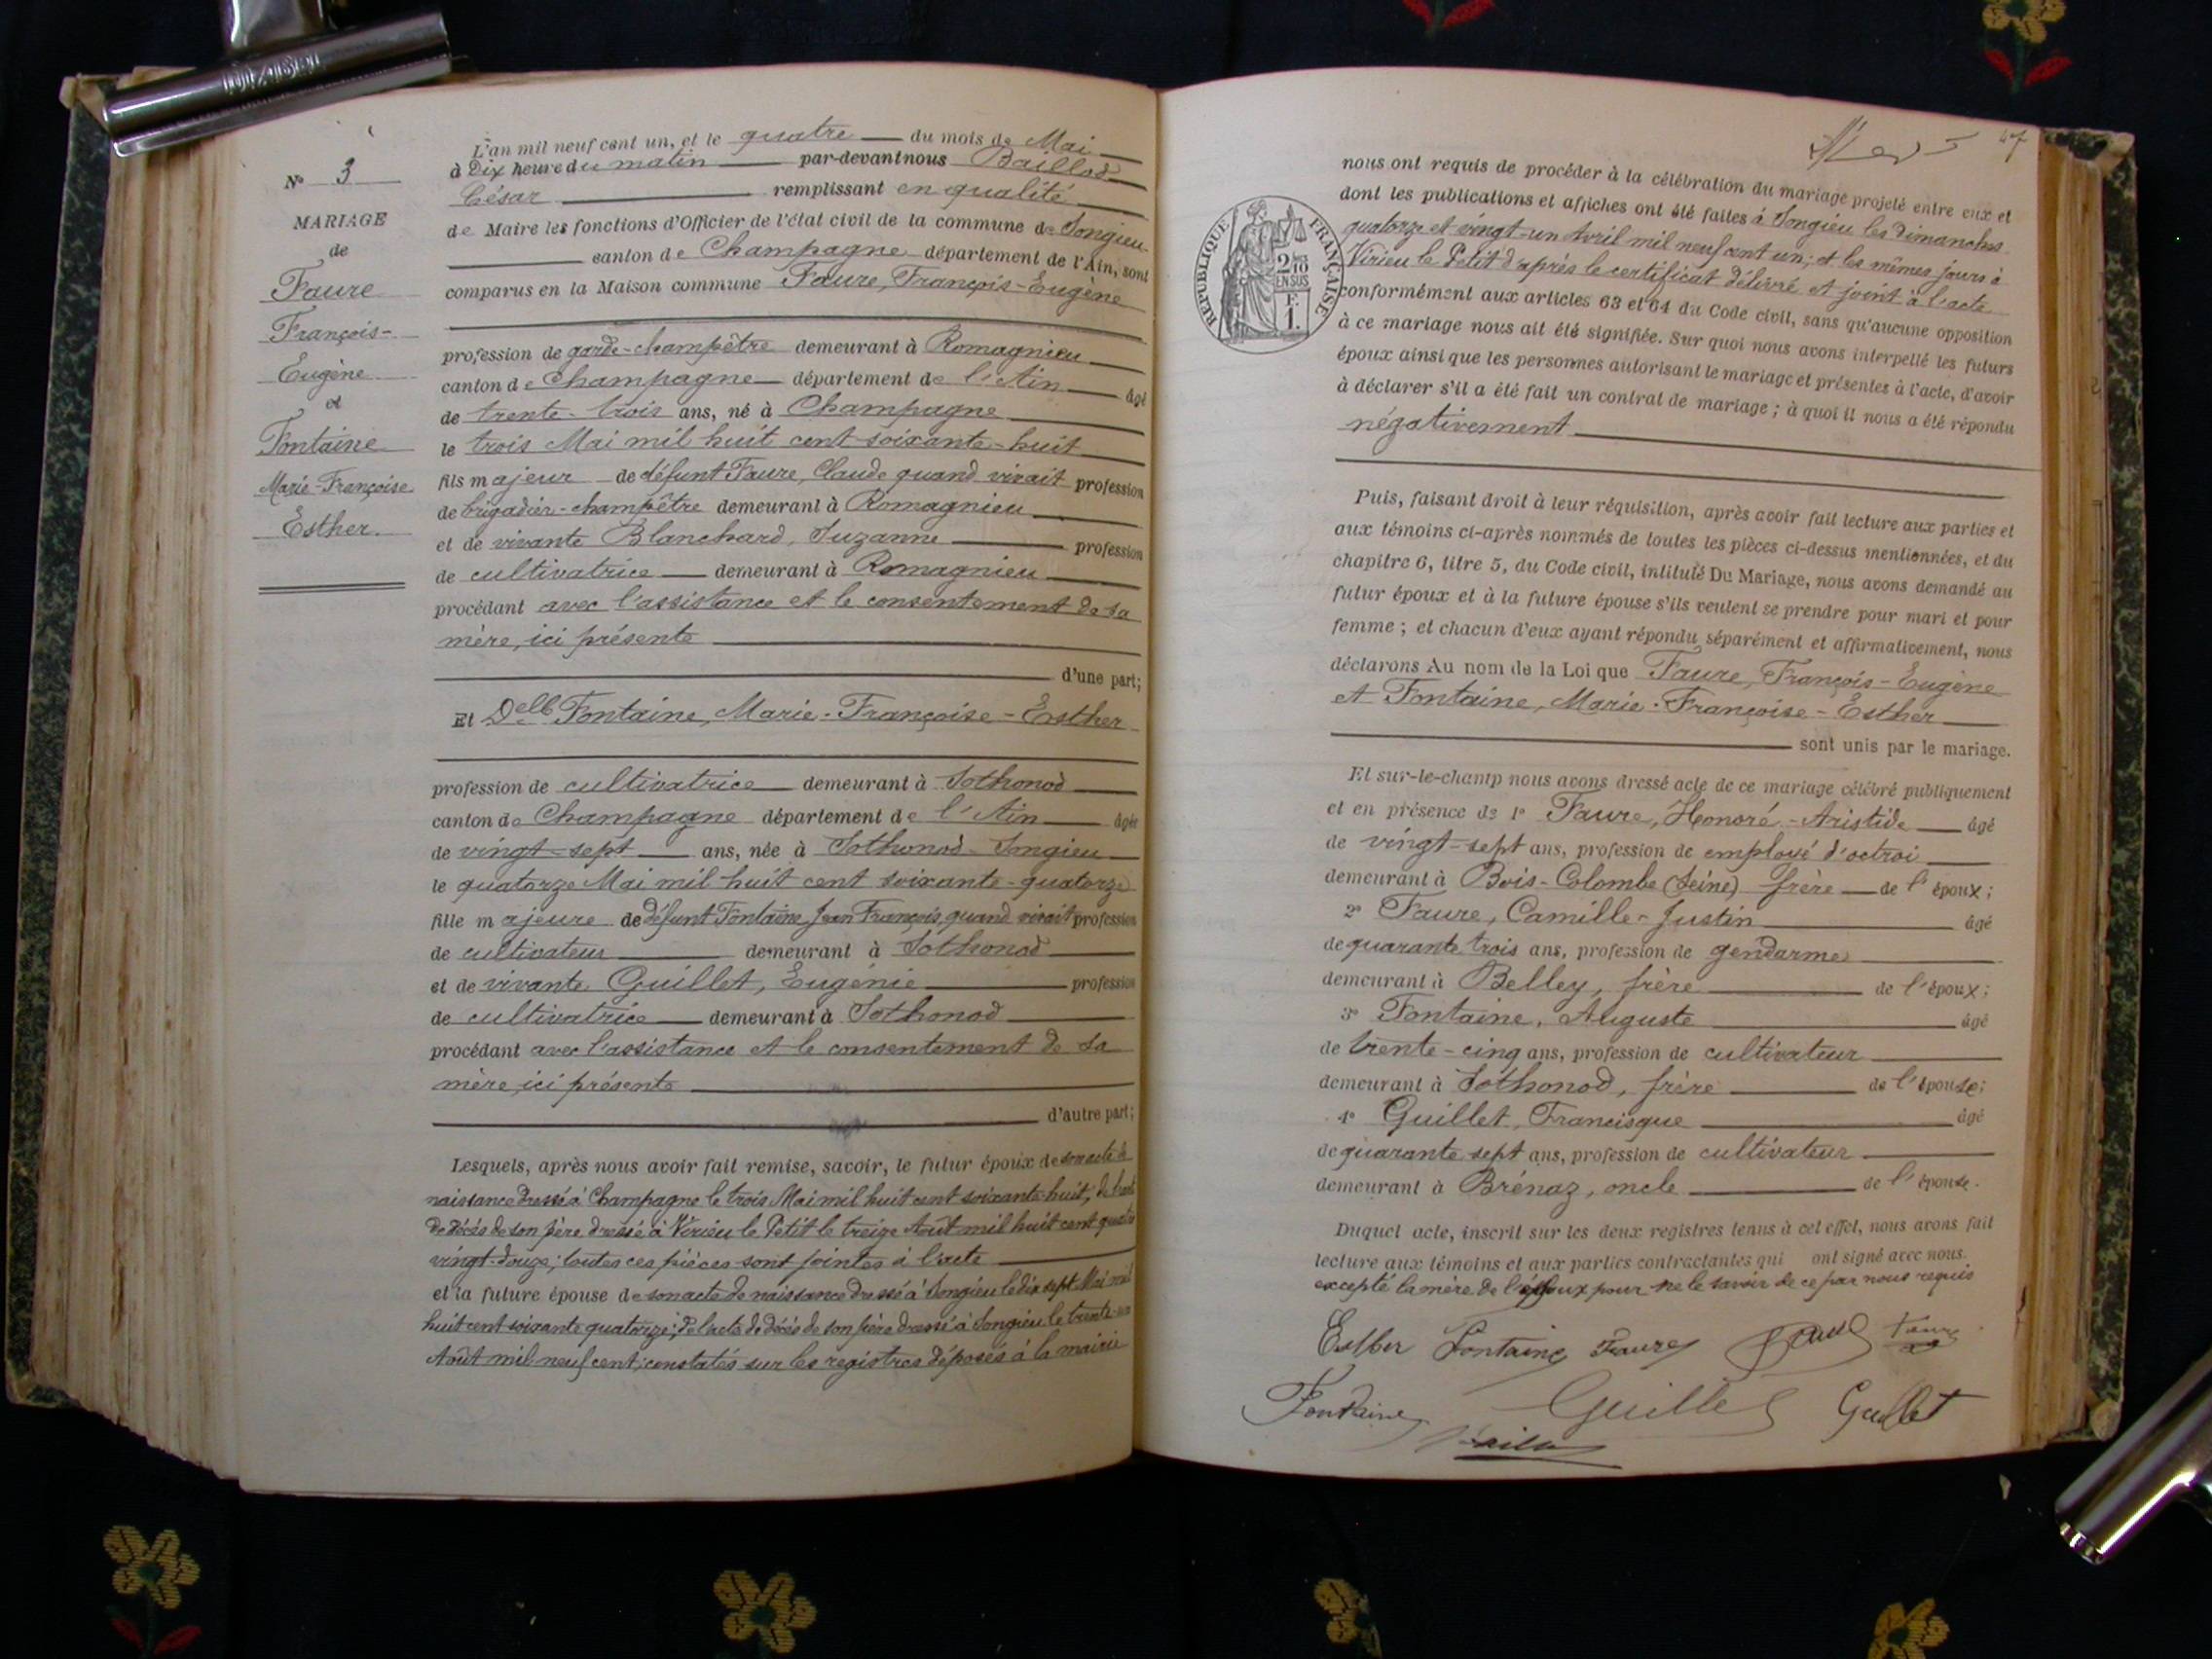 N° 3
MARIAGE
de
Faure
François-
Eugène
et
Fontaine
Marie-Françoise
Esther.
L'an mil neuf cent un, et le quatre du mois de Mai
à Dix heure du matin par-devant nous Baillod
César remplissant en qualité
de Maire les fonctions d'Officier de l'état civil de la commune de Songieu
canton de Champagne département de l'Ain, sont
comparus en la Maison commune Faure, François-Eugène
profession de garde-champêtre demeurant à Romagnieu
canton de Champagne département de l'Ain âgé
de trente-trois ans, né à Champagne
le trois Mai mil huit cent soixante-huit
fils majeur de défunt Faure, Claude quand vivait profession
de brigadier-champêtre demeurant à Romagnieu
et de vivante Blanchard, Suzanne profession
de cultivatrice demeurant à Romagnieu
procédant avec l'assistance et le consentement de sa
mère, ici présente
d'une part;
Et Delle Fontaine, Marie-Françoise-Esther
profession de cultivatrice demeurant à Sothonod
canton de Champagne département de l'Ain âgée
de vingt-sept ans, née à Sothonod-Songieu
le quatorze Mai mil huit cent soixante-quatorze
fille majeure de défunt Fontaine, Jean François, quand vivait profession
de cultivateur demeurant à Sothonod
et de vivante Guillet, Eugénie profession
de cultivatrice demeurant à Sothonod
procédant avec l'assistance et le consentement de sa
mère, ici présente
d'autre part;
Lesquels, après nous avoir fait remise, savoir, le futur époux de son acte de
naissance dressé à Champagne le trois Mai mil huit cent soixante-huit; de l'acte
de décès de son père dressé à Virieu le Petit le treize Août mil huit cent quatre
vingt-douze; toutes ces pièces sont jointes à l'acte
et la future épouse de son acte de naissance dressé à Songieu le dix sept Mai mil
huit cent soixante quatorze; de l'acte de décès de son père dressé à Songieu le trente-un
Août mil neuf cent; constatés sur les registres déposés à la mairie
47
REPUBLIQUE FRANÇAISE
2/10
EN SUS
F.
1.
nous ont requis de procéder à la célébration du mariage projeté entre eux et
dont les publications et affiches ont été faites à Songieu les dimanches
quatorze et vingt-un Avril mil neuf cent un; et les mêmes jours à
Virieu le Petit d'après le certificat délivré et joint à l'acte
conformément aux articles 63 et 64 du Code civil, sans qu'aucune opposition
à ce mariage nous ait été signifiée. Sur quoi nous avons interpellé les futurs
époux ainsi que les personnes autorisant le mariage et présentes à l'acte, d'avoir
à déclarer s'il a été fait un contrat de mariage; à quoi il nous a été répondu
négativement
Puis, faisant droit à leur réquisition, après avoir fait lecture aux parties et
aux témoins ci-après nommés de toutes les pièces ci-dessus mentionnées, et du
chapitre 6, titre 5, du Code civil, intitulé Du Mariage, nous avons demandé au
futur époux et à la future épouse s'ils veulent se prendre pour mari et pour
femme; et chacun d'eux ayant répondu séparément et affirmativement, nous
déclarons Au nom de la Loi que Faure, François-Eugène
et Fontaine, Marie-Françoise-Esther
sont unis par le mariage.
Et sur-le-champ nous avons dressé acte de ce mariage célébré publiquement
et en présence de 1° Faure, Honoré-Aristide âgé
de vingt-sept ans, profession de employé d'octroi
demeurant à Bois-Colombe (Seine) frère de l'époux;
2° Faure, Camille-Justin âgé
de quarante trois ans, profession de gendarme
demeurant à Belley, frère de l'époux;
3° Fontaine, Auguste âgé
de trente-cinq ans, profession de cultivateur
demeurant à Sothonod, frère de l'épouse;
4° Guillet, Francisque âgé
de quarante sept ans, profession de cultivateur
demeurant à Brénaz, oncle de l'épouse.
Duquel acte, inscrit sur les deux registres tenus à cet effet, nous avons fait
lecture aux témoins et aux parties contractantes qui ont signé avec nous.
excepté la mère de l'époux pour ne le savoir de ce par nous requis
Esther Fontaine Faure Faure Faure
Fontaine Guillet Guillet